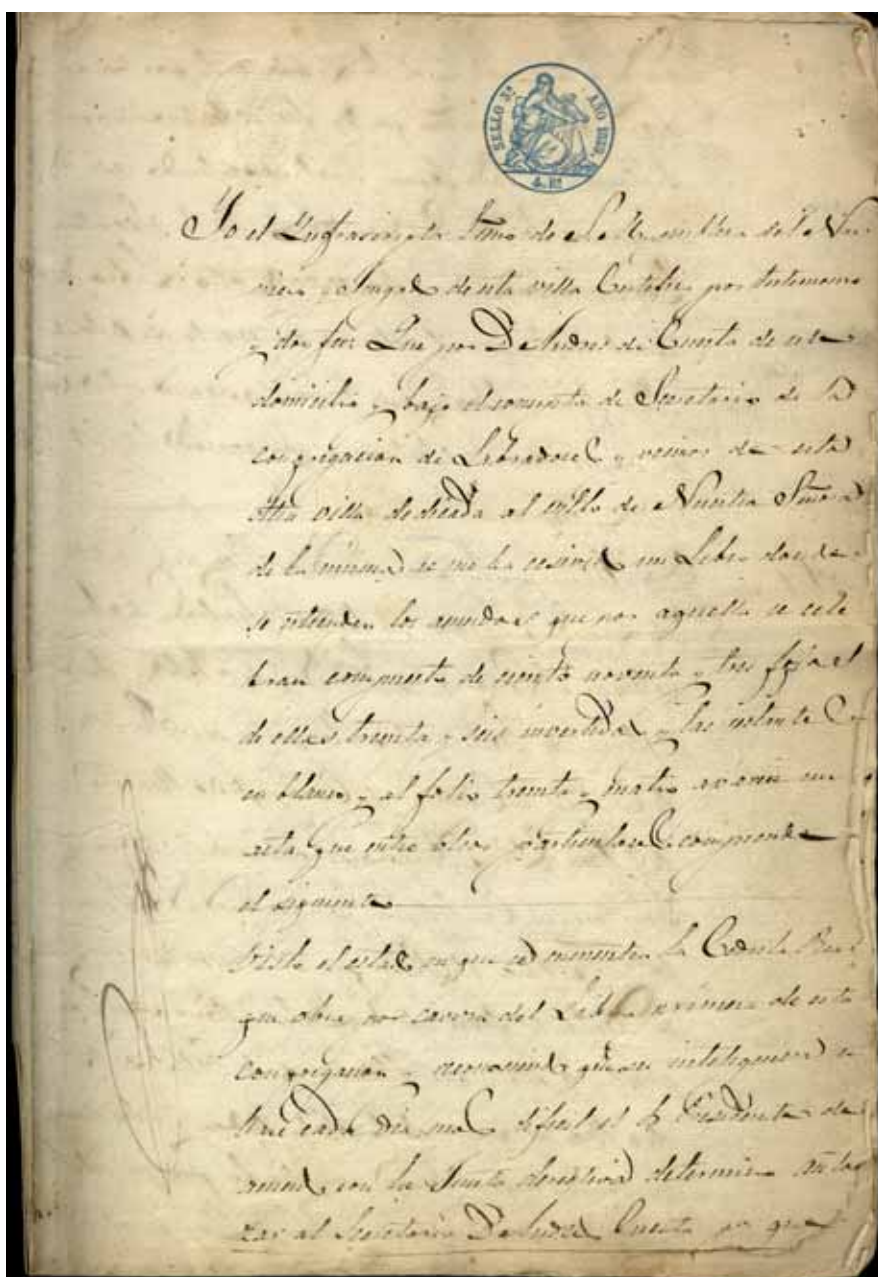 SELLO 9º AÑO 1883.
4 Rs
Yo el Infrascripto de S. M. del
y de esta villa Certifico por testimonio
y doy fee: Que por Dn Andres de Cuesta de este
domicilio y bajo el de Secretario de la
congregacion de Labradores y vecinos de esta
dha villa dedicada al culto de Nuestra Señora
de la misma se me ha un Libro donde
se estienden los acuerdos que por aquella se cele
bran compuesto de ciento noventa y tres fojas
de ellas treinta y seis invertidas y las restantes
en blanco, y al folio treinta y cuatro una
acta que entre otros particulares comprende
el siguiente
Visto el estado en que se encuentra la Cedula Real
que obra por cavera del Libro primero de esta
congregacion y que su inteligencia se
hace cada dia mas dificil el Sr Presidente de
acuerdo con la Junta directiva determino autori
zar al Secretario Dn Andres Cuesta pa que